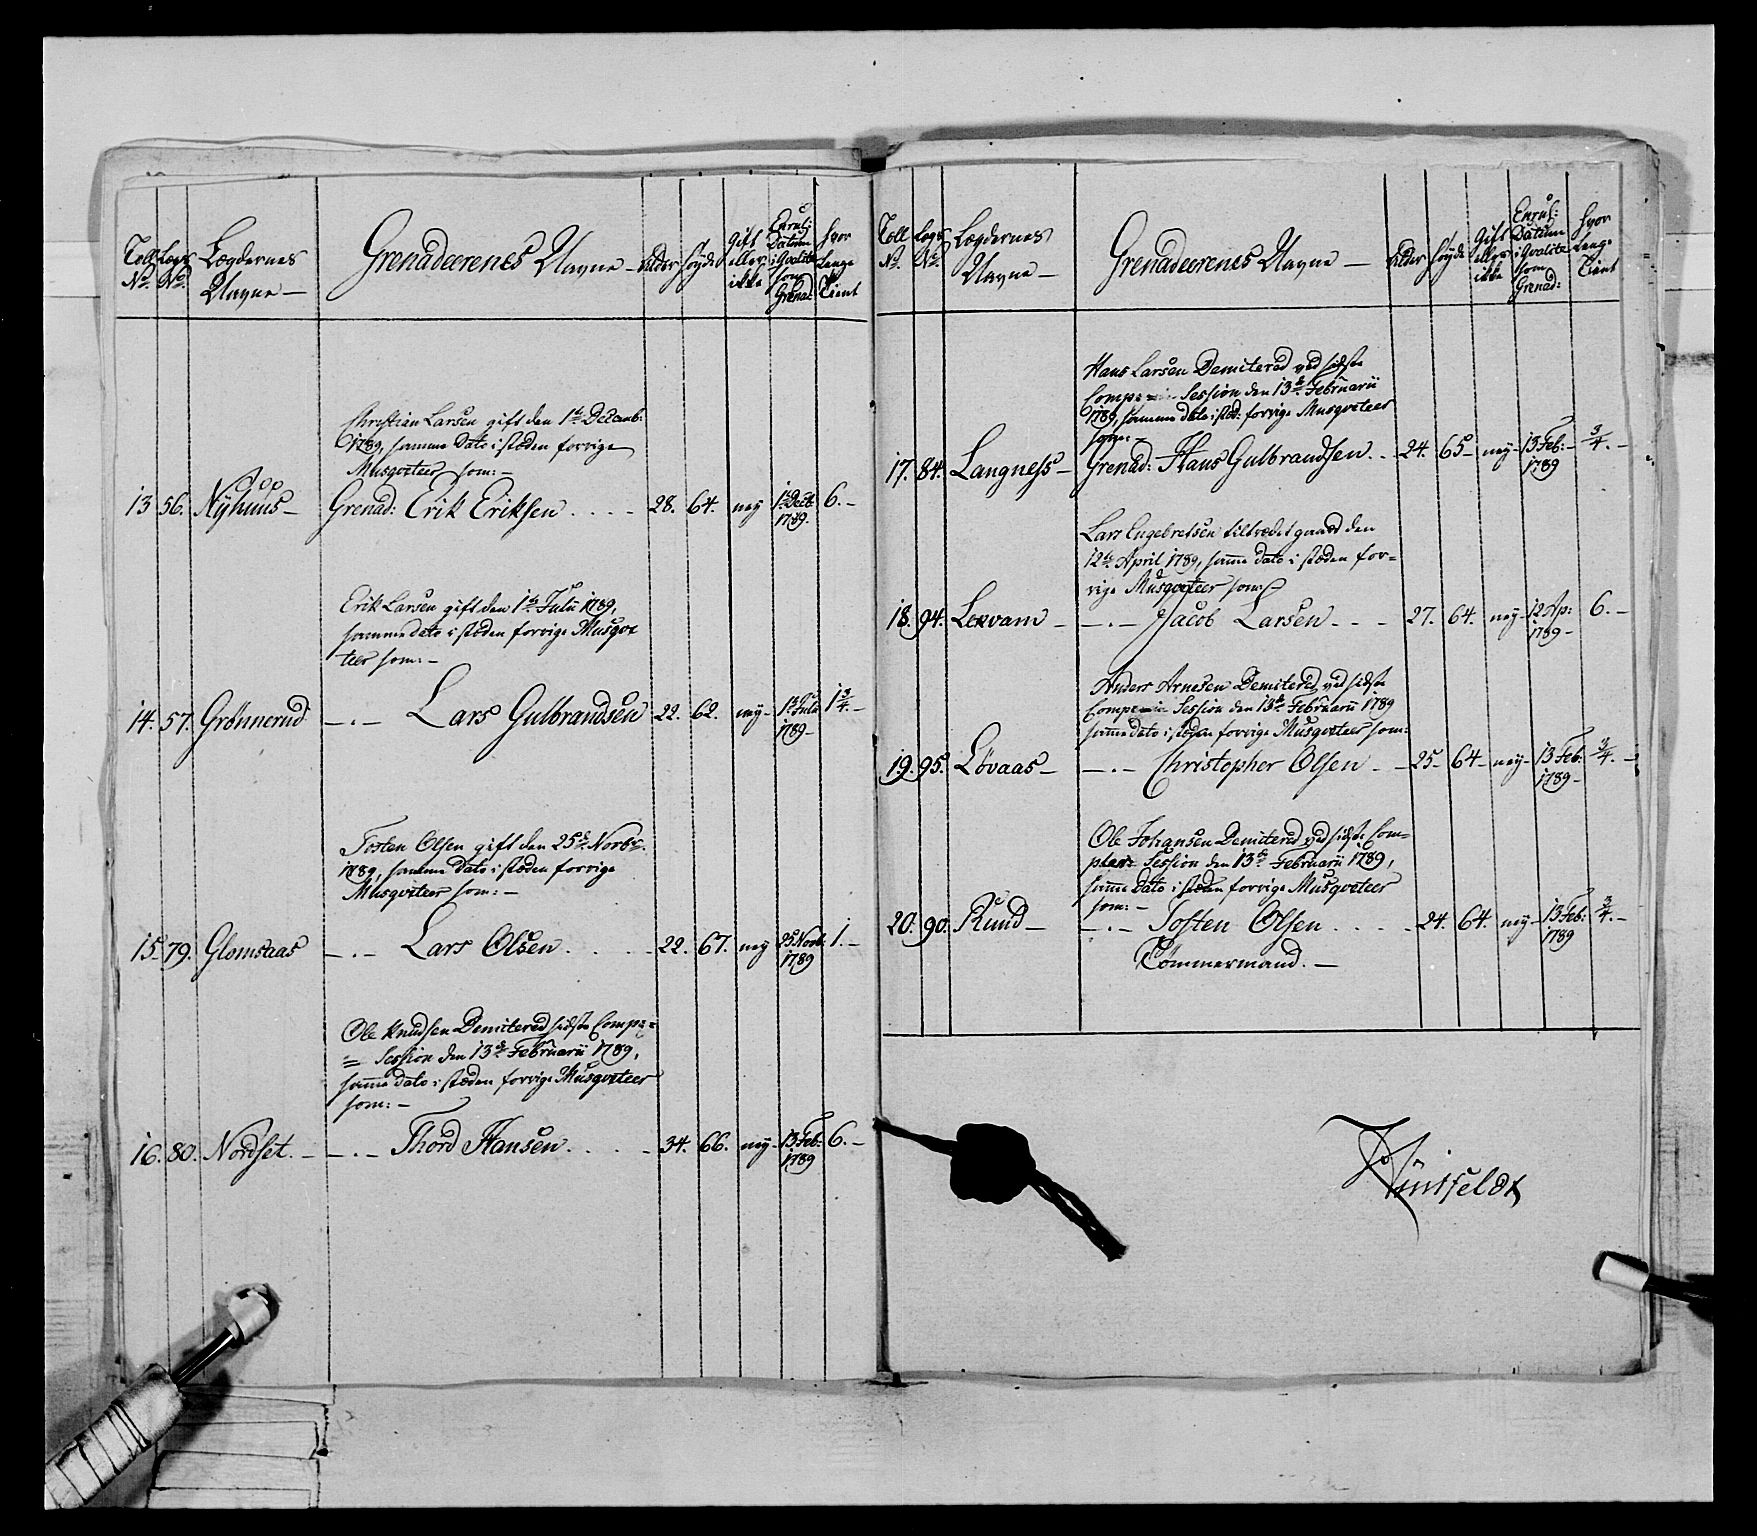 Tall No. Lægs No. Lægdernes Navne — Grenadeerenes Navne — Alder Høyde Gift eller ikke Enrul: Datum i Qvalite som Grenad: Hvor Længe Tient
Christian Larsen gift den 1te Decemb:
1789, samme Dato i stæden forrige
Musqveteer som: —
13 56. Nÿhuus — Grenad: Erik Eriksen . . . . 28. 64. neÿ 1te Decb: 1789. 6. —
Erik Larsen gift den 1te Julii 1789,
samme dato i stæden forrige Musqve
teer som: —
14. 57. Grønnerud — . — Lars Gulbrandsen 22. 62. neÿ — 1te Julii 1789 — 1 3/4. —
Tosten Olsen gift den 25de Novbr.
1789, samme Dato i stæden forrige
Musqveteer som: —
15. 79. Glomsaas — . — Lars Olsen . . . . 22. 67. neÿ 25 Novb: 1789 1. —
Ole Knudsen Demitered sidste Comp: =
= Session den 13de Februarii 1789,
samme dato i stæden forrige Musqveteer
som: —
16. 80. Nordset. — — . — Thord Hansen . . . . 34. 66. neÿ — 13 Feb: 1789 6. —
Tall No. Lægs No. Lægdernes Navne — Grenadeerenes Navne — Alder Høyde Gift eller ikke Enrul: Datum i Qvalite som Grenad: Hvor Længe Tient
Hans Larsen Demitered ved sidste
Comp: Session den 13de Februarii
1789, samme dato i stæd: forrige Musqveteer
som: —
17. 84. Langness — Grenad: Hans Gulbrandsen . . 24. 65 — neÿ — 13 Feb: 1789 — 3/4. —
Lars Engebretsen tiltrædet gaard den
12te April 1789, samme dato i stæden for=
rige Musqveteer som:
18. 94. Lexvam — — . — Jacob Larsen . . . 27. 64. neÿ — 12 Ap: 1789 — 6. —
Anders Arnesen Demitered ved sidste
Comp: Session den 13de Februarii 1789
samme dato i stæden forrige Musqveteer som:
19. 95. Løvaas — — . — Christopher Olsen . . 25. 64 — neÿ — 13 Feb: 1789 — 3/4. —
Ole Johansen Demitered ved sidste Com=
Session den 13de Februarii 1789,
samme dato i stæden forrige Musqveteer
som: —
20. 90. Ruud — — . — Tosten Olsen . . . . 24. 64. neÿ — 13 Feb: 1789 3/4. —
Tømmermand. —
Hüitfeldt